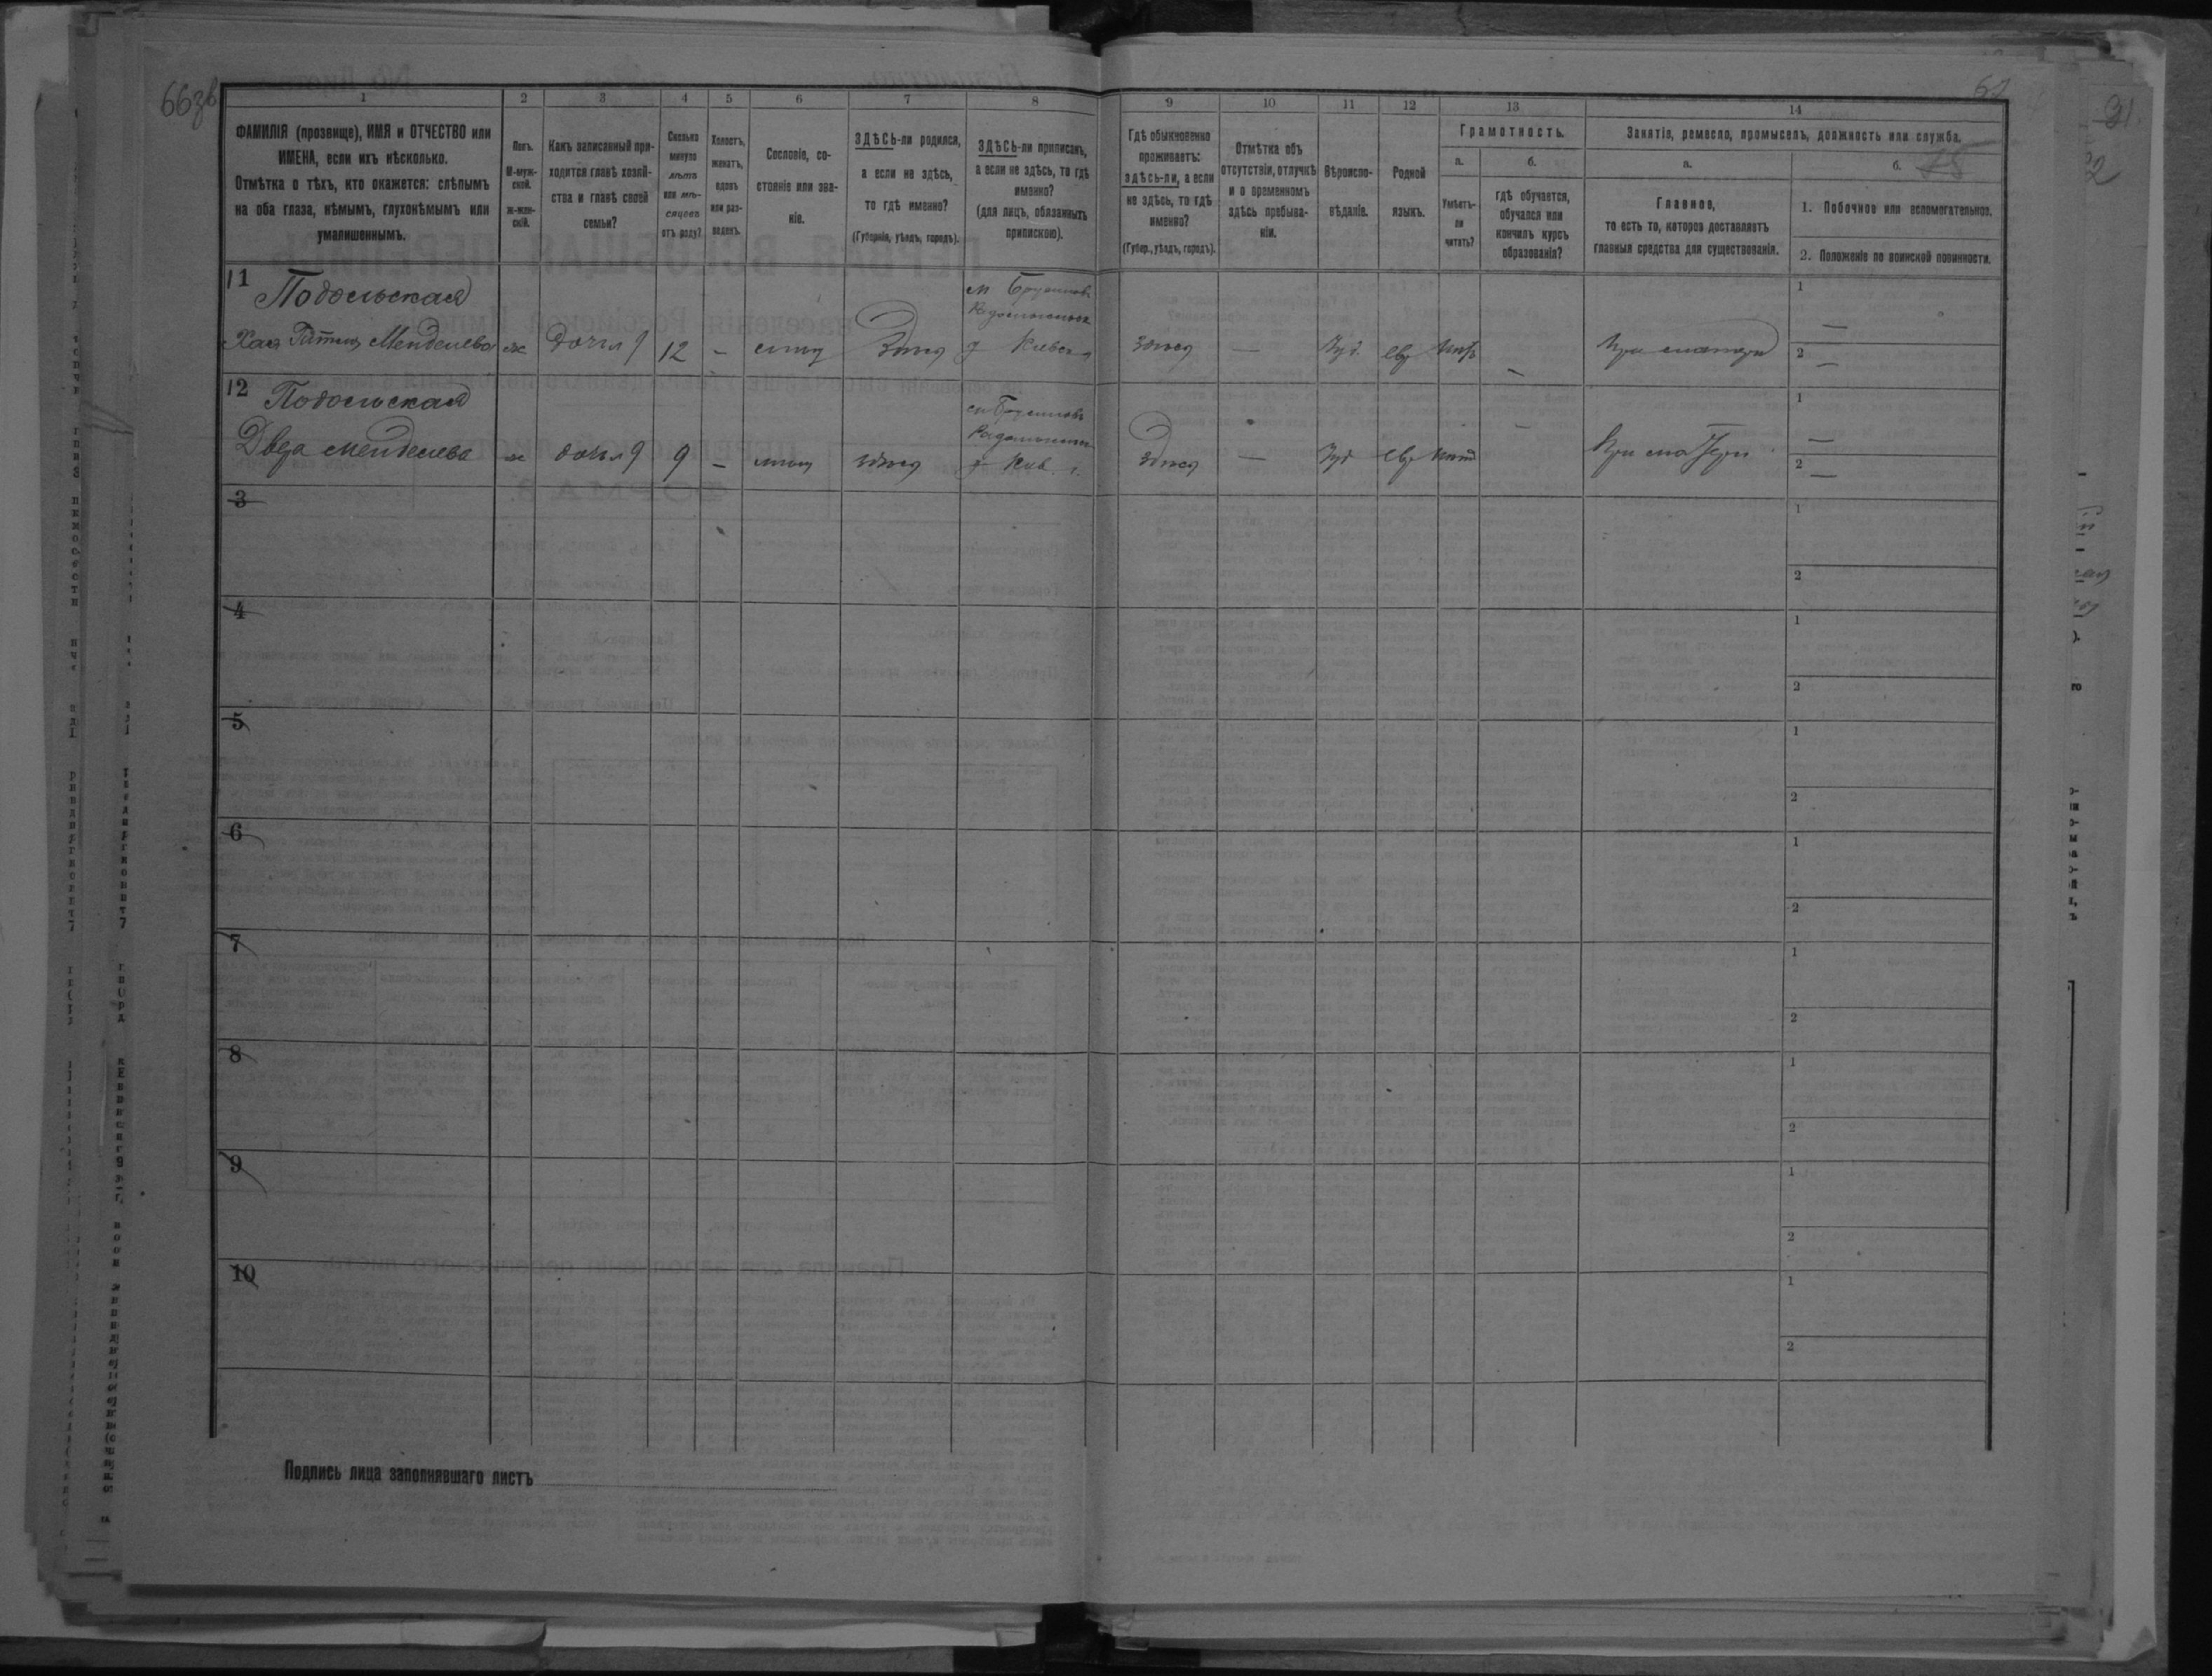 663об
62
1
2
3
4
5
6
7
8
9
10
11
12
13
14
ФАМИЛІЯ (прозвище), ИМЯ и ОТЧЕСТВО или
ИМЕНА, если ихъ нѣсколько.
Отмѣтка о тѣхъ, кто окажется: слѣпымъ
на оба глаза, нѣмымъ, глухонѣмымъ или
умалишеннымъ.
Полъ.
М-муж-
ской.
Ж-жен-
скій.
Какъ записанный при-
ходится главѣ хозяй-
ства и главѣ своей
семьи?
Сколько
минуло
лѣтъ
или мѣ-
сяцевъ
отъ роду?
Холостъ,
женатъ,
вдовъ
или раз-
веденъ.
Сословіе, со-
стояніе или зва-
ніе.
ЗДѢСЬ-ли родился,
а если не здѣсь,
то гдѣ именно?
(Губернія, уѣздъ, городъ).
ЗДѢСЬ-ли приписанъ,
а если не здѣсь, то гдѣ
именно?
(для лицъ, обязанныхъ
припискою).
Гдѣ обыкновенно
проживаетъ:
здѣсь-ли, а если
не здѣсь, то гдѣ
именно?
(Губер., уѣздъ, городъ).
Отмѣтка объ
отсутствіи, отлучкѣ
и о временномъ
здѣсь пребыва-
ніи.
Вѣроиспо-
вѣданіе.
Родной
языкъ.
Грамотность.
а.
Умѣетъ-
ли
читать?
б.
гдѣ обучается,
обучался или
кончилъ курсъ
образованія?
Занятіе, ремесло, промыселъ, должность или служба.
а.
Главное,
то есть то, которое доставляетъ
главныя средства для существованія.
б.
1. Побочное или вспомогательное.
2. Положеніе по воинской повинности.
11
Подольская
Хая Менделева ж дочь 12 — здѣсь
м Брусиловъ
Радомысльск
у Кіевск
здѣсь — Іуд. евр нѣтъ — При матери
1 —
2 —
12
Подольская
Двейра Менделева ж дочь 9 — здѣсь
м Брусиловъ
Радомысльск
у Кіев. г.
здѣсь — Іуд евр нѣтъ — При матери
1 —
2 —
3
1
2
4
1
2
5
1
2
6
1
2
7
1
2
8
1
2
9
1
2
10
1
2
Подпись лица заполнявшаго листъ